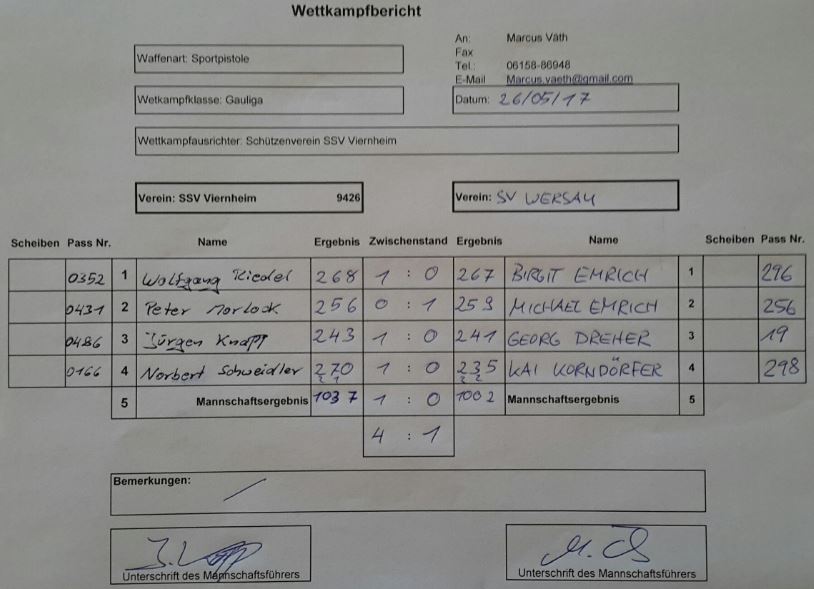 Wettkampfbericht
An: Marcus Väth
Fax
Waffenart: Sportpistole
Tel.: 06158-86948
E-Mail Marcus.vaeth@gmail.com
Wetkampfklasse: Gauliga
Datum: 26/05/17
Wettkampfausrichter: Schützenverein SSV Viernheim
Verein: SSV Viernheim 9426
Verein: SV WERSAU
Scheiben Pass Nr. Name Ergebnis Zwischenstand Ergebnis Name Scheiben Pass Nr.
0352 1 Wolfgang Riedel 268 1 : 0 267 BIRGIT EMRICH 1 296
0431 2 Peter Morlock 256 0 : 1 259 MICHAEL EMRICH 2 256
0486 3 Jürgen Knapp 243 1 : 0 241 GEORG DREHER 3 19
0166 4 Norbert Schweidler 270 1 : 0 235 KAI KORNDÖRFER 4 298
2 1 2 2
5 Mannschaftsergebnis 1037 1 : 0 1002 Mannschaftsergebnis 5
4 : 1
Bemerkungen: /
Unterschrift des Mannschaftsführers
Unterschrift des Mannschaftsführers